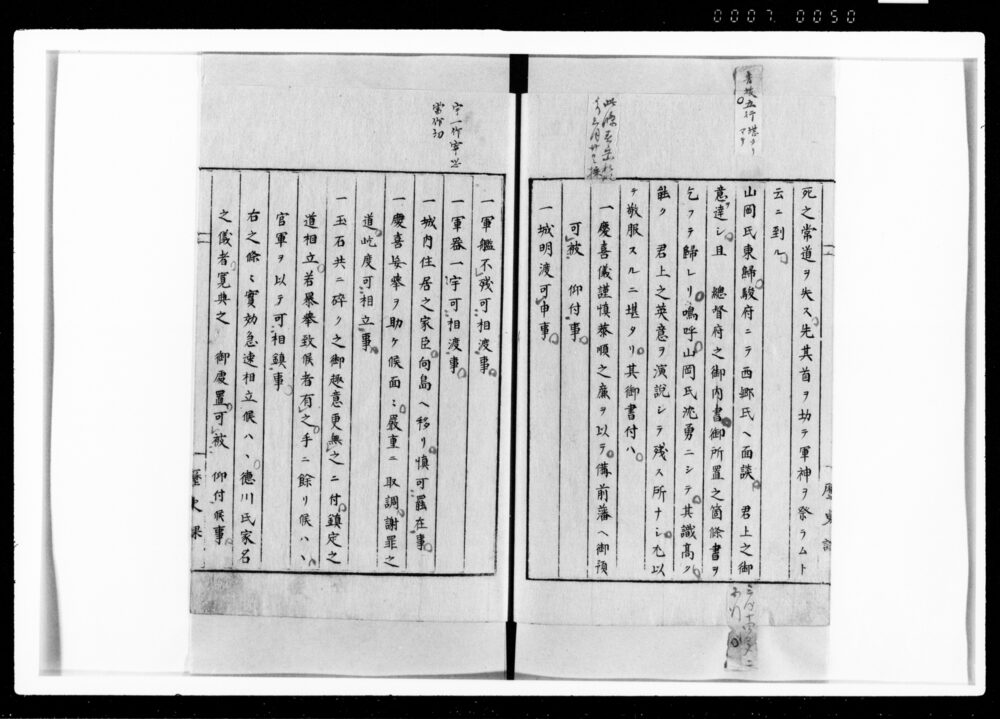 0007 0050
死之常道ヲ失ス先其首ヲ劫テ軍神ヲ祭ラムト
云ニ到ル
山岡氏東歸駿府ニテ西郷氏ヘ面談 君上之御
意達シ且 總督府之御内書御所置之箇條書ヲ
乞フテ歸レリ嗚呼山岡氏沈勇ニシテ其識高ク
能ク 君上之英意ヲ演説シテ残ス所ナシ尤以
テ敬服スルニ堪タリ其御書付ハ
一慶喜儀謹慎恭順之廉ヲ以テ備前藩ヘ御預
可被 仰付事
一城明渡可申事
一軍艦不残可相渡事
一軍器一宇可相渡事
一城内住居之家臣向島ヘ移リ慎可罷在事
一慶喜妄挙ヲ助ケ候面々嚴重ニ取調謝罪之
道屹度可相立事
一玉石共ニ砕ク之御趣意更無之ニ付鎮定之
道相立若暴挙致候者有之手ニ餘リ候ハヽ
官軍ヲ以テ可相鎮事
右之條々實効急速相立候ハヽ徳川氏家名
之儀者寛典之 御處置可被 仰付候事
歴史課